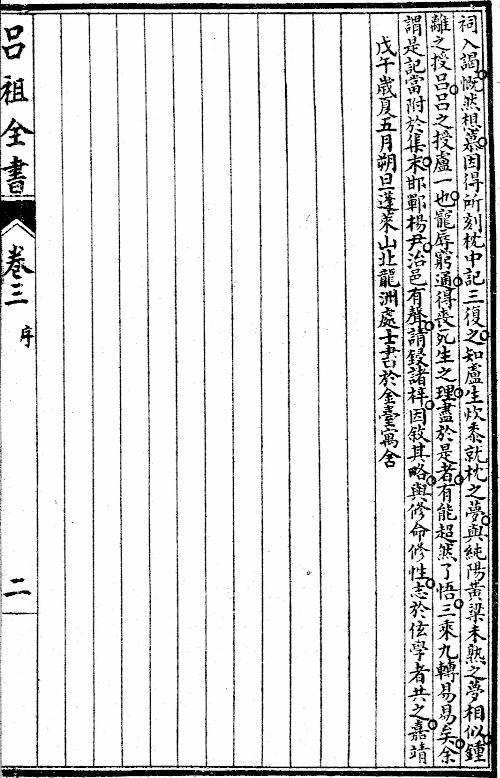 祠入謁慨然想慕因得所刻枕中記三復之知盧生炊黍就枕之夢與純陽黃粱未熟之夢相似鍾
離之授呂呂之授盧一也寵辱窮通得喪死生之理盡於是者有能超然了悟三乘九轉易易矣余
謂是記當附於集末邯鄲楊尹治邑有聲請鋟諸梓因敘其略與修命修性志於伭學者共之嘉靖
戊午歲夏五月朔旦蓬萊山北龍洲處士書於金臺寓舍
呂祖全書
卷三 序
二